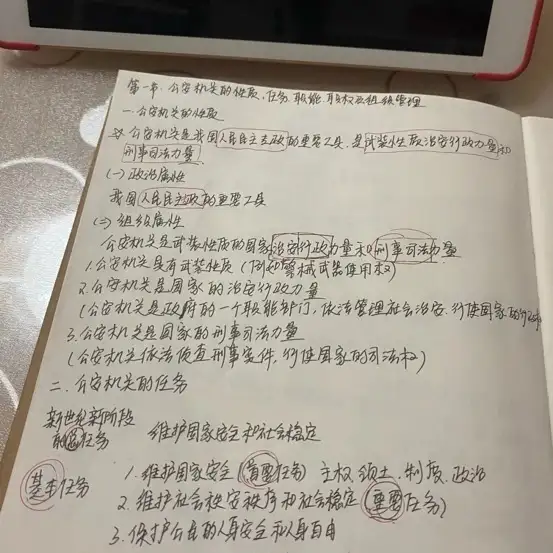 第一节 公安机关的性质、任务、职能、职权及组织管理
一、公安机关的性质
公安机关是我国人民民主专政的重要工具,是武装性质治安行政力量和
刑事司法力量
(一)政治属性
我国人民民主专政的重要工具
(二)组织属性
公安机关是武装性质的国家治安行政力量和刑事司法力量
1.公安机关具有武装性质(警械武器使用权)
2.公安机关是国家的治安行政力量
(公安机关是政府的一个职能部门,依法管理社会治安,行使国家的行政
3.公安机关是国家的刑事司法力量
(公安机关依法侦查刑事案件,行使国家的司法权)
二、公安机关的任务
新世纪新阶段
的总任务 维护国家安全和社会稳定
基本任务 1.维护国家安全(首要任务)主权、领土、制度、政治
2.维护社会治安秩序和社会稳定(重要任务)
3.保护公民的人身安全和人身自由